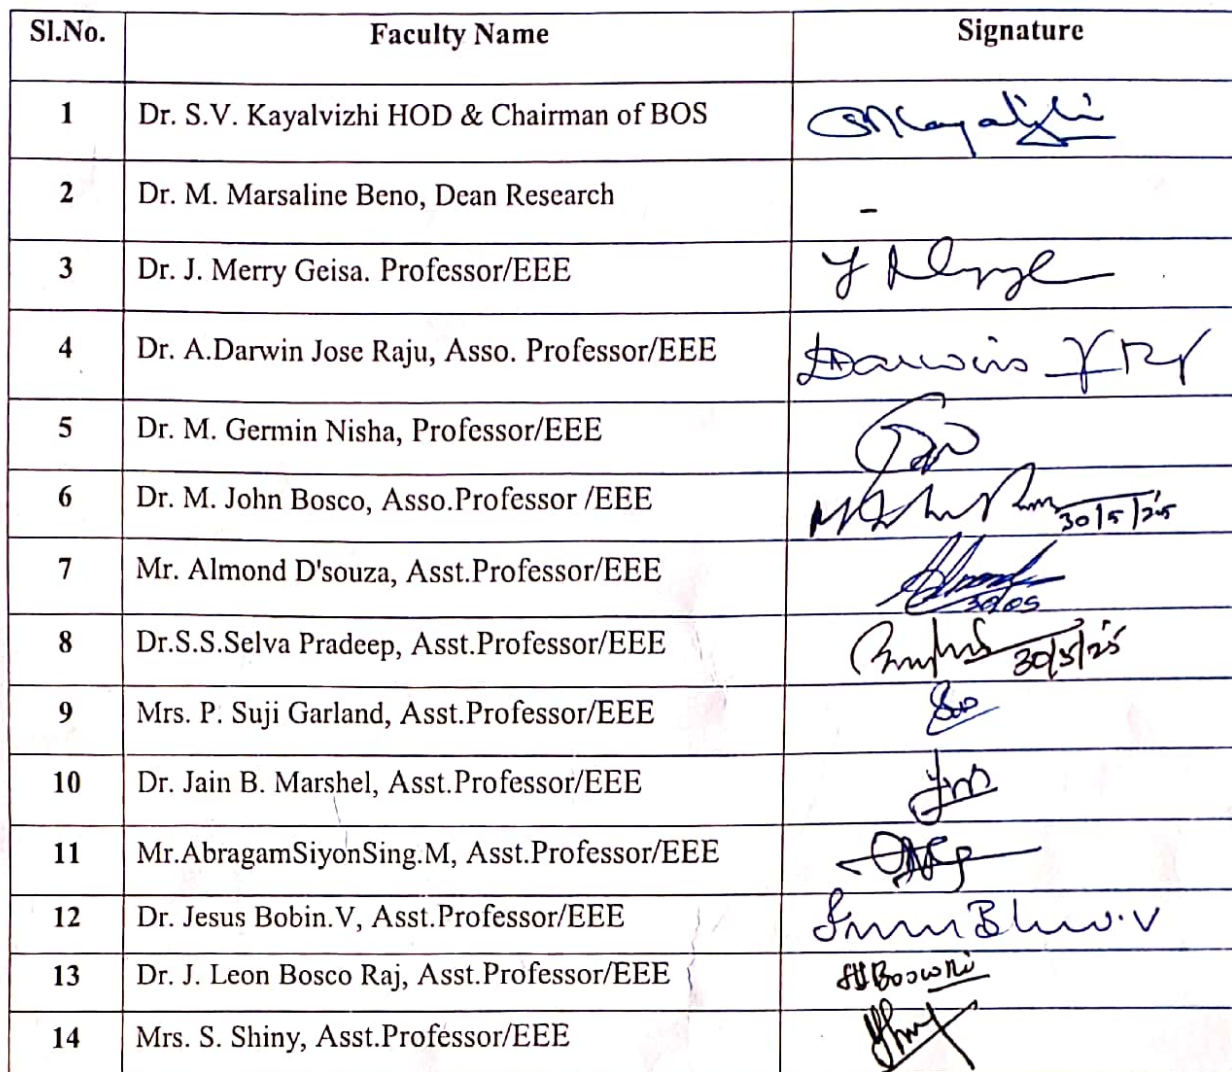 Sl.No. Faculty Name Signature
1 Dr. S.V. Kayalvizhi HOD & Chairman of BOS
2 Dr. M. Marsaline Beno, Dean Research -
3 Dr. J. Merry Geisa. Professor/EEE
4 Dr. A.Darwin Jose Raju, Asso. Professor/EEE Darwin
5 Dr. M. Germin Nisha, Professor/EEE
6 Dr. M. John Bosco, Asso.Professor /EEE 30/5/25
7 Mr. Almond D'souza, Asst.Professor/EEE 30/05
8 Dr.S.S.Selva Pradeep, Asst.Professor/EEE 30/5/25
9 Mrs. P. Suji Garland, Asst.Professor/EEE
10 Dr. Jain B. Marshel, Asst.Professor/EEE
11 Mr.AbragamSiyonSing.M, Asst.Professor/EEE
12 Dr. Jesus Bobin.V, Asst.Professor/EEE
13 Dr. J. Leon Bosco Raj, Asst.Professor/EEE
14 Mrs. S. Shiny, Asst.Professor/EEE